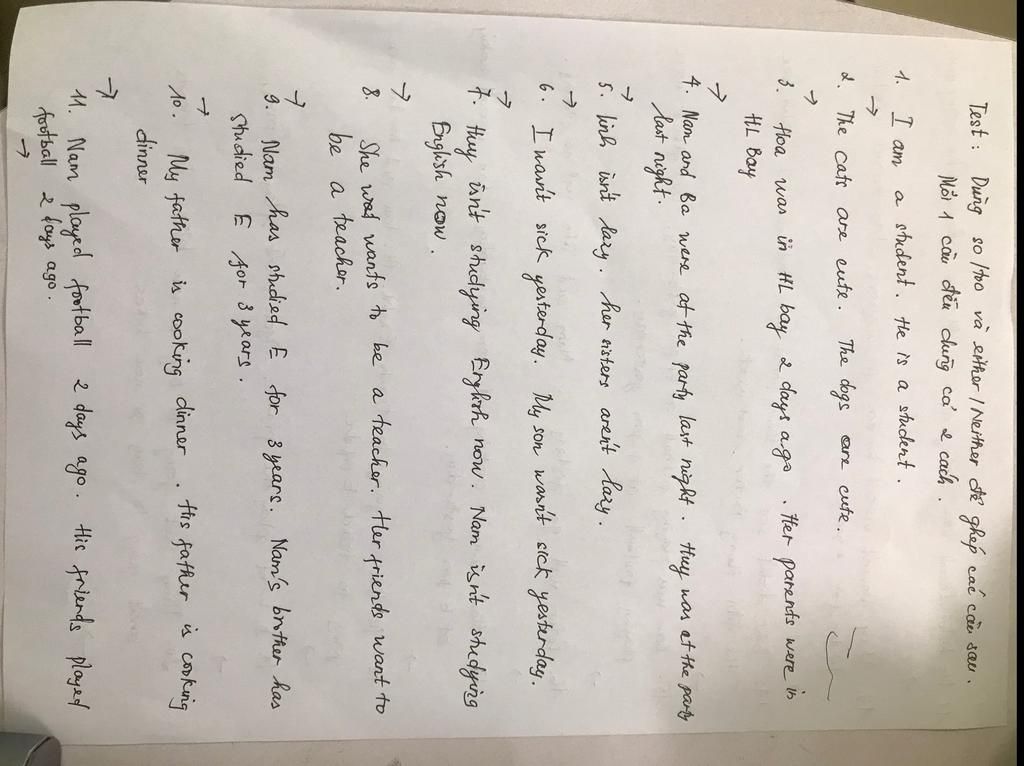 Test: Dùng so/too và either/Neither để ghép các câu sau.
Mỗi 1 câu đều dùng cả 2 cách.
1. I am a student. He is a student.
→
2. The cats are cute. The dogs are cute.
→
3. Hoa was in HL bay 2 days ago. Her parents were in
HL Bay
→
4. Nam and Ba were at the party last night. Huy was at the party
last night.
→
5. Linh isn't lazy. her sisters aren't lazy.
→
6. I wasn't sick yesterday. My son wasn't sick yesterday.
→
7. Huy isn't studying English now. Nam isn't studying
English now.
→
8. She wants to be a teacher. Her friends want to
be a teacher.
→
9. Nam has studied E for 3 years. Nam's brother has
studied E for 3 years.
→
10. My father is cooking dinner. His father is cooking
dinner
→
11. Nam played football 2 days ago. His friends played
football 2 days ago.
→